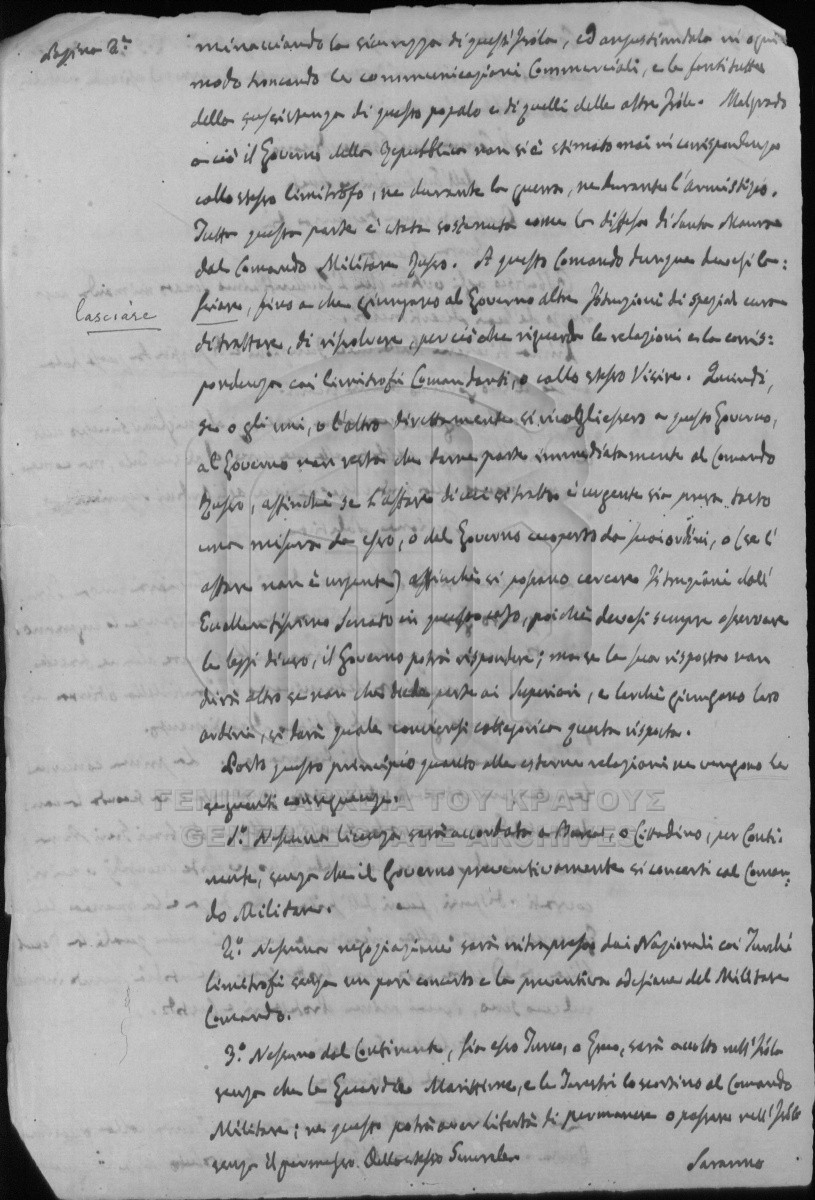 Pagina 2.a
minacciando la sicurezza di quest'Isola, ed angustiandola in ogni
modo troncando le communicazioni Commerciali, e le fonti tutte
della sussistenza di questo popolo e di quelli delle altre Isole. Malgrado
a ciò il Governo della Repubblica non si è stimato mai in corrispondenza
collo stesso limitrofo, ne durante la guerra, ne durante l'armistizio.
Tutta questa parte è stata sostenuta come la diffesa di Santa Maura
dal Comando Militare Russo. A questo Comando dunque devesi la=
sciare, fino a che giungano al Governo altre Istruzioni di spezial cura
lasciare
di trattare, di risolvere, per ciò che riguarda le relazioni e la corris=
pondenza coi limitrofi Comandanti, o collo stesso Visire. Quindi,
se o gli uni, o l'altro direttamente si rivolgliessero a questo Governo,
al Governo non resta che darne parte immediatamente al Comando
Russo, affinchè se l'affare di cui si tratta è urgente sia presa tosto
una misura da esso, o dal Governo coperto da suoi ordini, o (se l'
affare non è urgente) affinchè si possano cercare Istruzioni dall'
Eccellentissimo Senato in questo caso, poichè devesi sempre osservare
le leggi di uso, il Governo potrà rispondere; ma se la sua risposta non
dirà altro se non che diede parte ai Superiori, e lorchè giungono loro
ordini, si darà quale convienesi cattegorica questa risposta.
Posto questo principio quanto alle esterne relazioni ne vengono le
seguenti conseguenze.
ΓΕΝΙΚΑ ΑΡΧΕΙΑ ΤΟΥ ΚΡΑΤΟΥΣ
GENERAL STATE ARCHIVES
1.o Nessuna licenza sarà accordata a Barca, o Cittadino, per Conti=
nente, senza che il Governo preventivamente si concerti col Coman=
do Militare.
2.o Nessuna negoziazione sarà intrapresa dai Nazionali coi Turchi
limitrofi senza un pari concerto e la preventiva adesione del Militare
Comando.
3.o Nessuno dal Continente, sia esso Turco, o Greco, sarà accolto nell'Isola
senza che le Guardie Marittime, e le Terrestri lo scortino al Comando
Militare; ne questo potrà aver libertà di permanere o passare nell'Isola
senza il permesso dello stesso Generale
Saranno